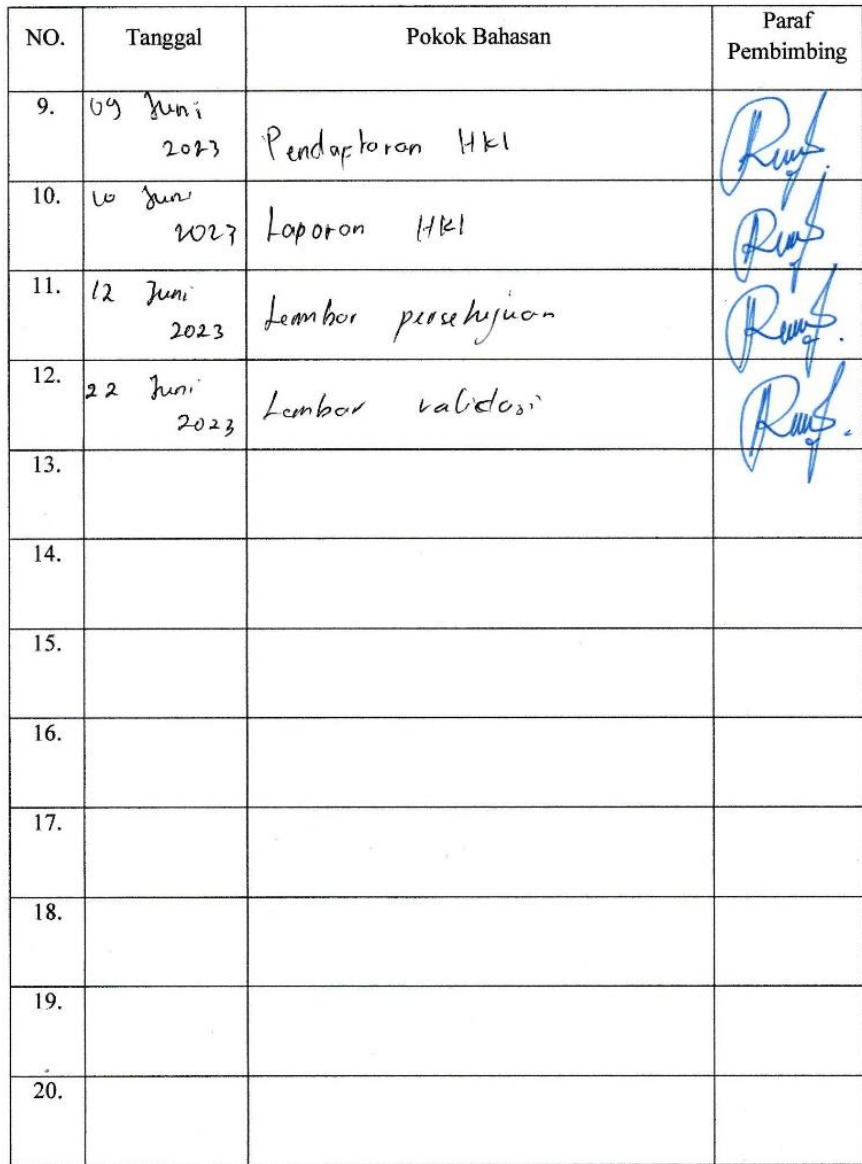 NO. Tanggal Pokok Bahasan Paraf Pembimbing
9. 09 Juni 2023 Pendaptaran HKI
10. 10 Juni 2023 Laporan HKI
11. 12 Juni 2023 Lembar persetujuan
12. 22 Juni 2023 Lembar validasi
13.
14.
15.
16.
17.
18.
19.
20.